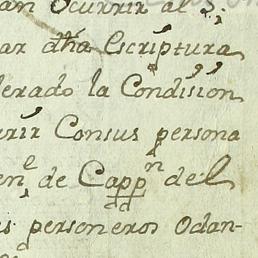 am Ocurrir al
ar dha Escriptura
erado la Condision
rrir Consus persona
en^e de Capp^n del
s personeros Odan-